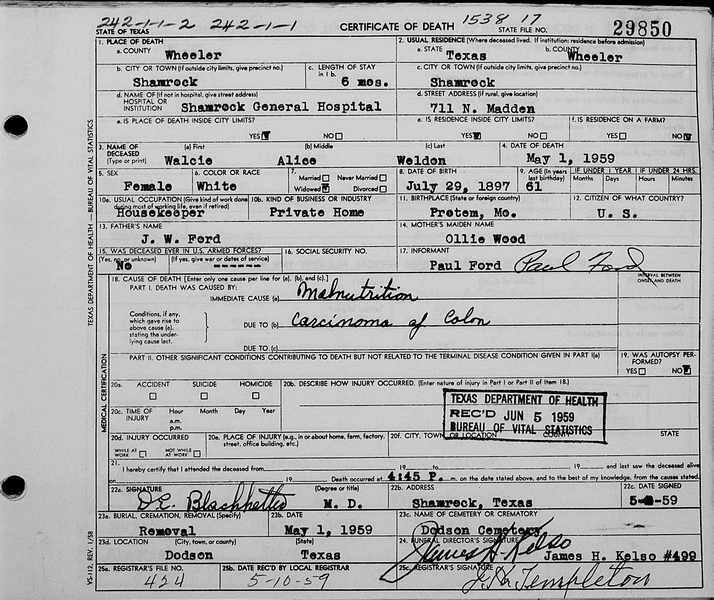 242-1-1-2 242-1-1 1538 17
CERTIFICATE OF DEATH
STATE OF TEXAS STATE FILE NO. 29850
1. PLACE OF DEATH
a. COUNTY Wheeler
2. USUAL RESIDENCE (Where deceased lived. If institution: residence before admission)
a. STATE Texas b. COUNTY Wheeler
b. CITY OR TOWN (If outside city limits, give precinct no.) Shamrock
c. LENGTH OF STAY in 1 b. 6 mos.
c. CITY OR TOWN (If outside city limits, give precinct no.) Shamrock
d. NAME OF (If not in hospital, give street address) HOSPITAL OR INSTITUTION Shamrock General Hospital
d. STREET ADDRESS (If rural, give location) 711 N. Madden
e. IS PLACE OF DEATH INSIDE CITY LIMITS? YES NO
e. IS RESIDENCE INSIDE CITY LIMITS? YES NO
f. IS RESIDENCE ON A FARM? YES NO
3. NAME OF DECEASED (Type or print)
(a) First (b) Middle (c) Last
Walcie Alice Weldon
4. DATE OF DEATH
May 1, 1959
5. SEX Female
6. COLOR OR RACE White
7. Married Never Married
Widowed Divorced
8. DATE OF BIRTH July 29, 1897
9. AGE (In years last birthday) 61
IF UNDER 1 YEAR Months Days
IF UNDER 24 HRS. Hours Minutes
10a. USUAL OCCUPATION (Give kind of work done during most of working life, even if retired) Housekeeper
10b. KIND OF BUSINESS OR INDUSTRY Private Home
11. BIRTHPLACE (State or foreign country) Protem, Mo.
12. CITIZEN OF WHAT COUNTRY? U. S.
13. FATHER'S NAME J. W. Ford
14. MOTHER'S MAIDEN NAME Ollie Wood
15. WAS DECEASED EVER IN U.S. ARMED FORCES?
(Yes, no, or unknown) (If yes, give war or dates of service)
No ------
16. SOCIAL SECURITY NO.
17. INFORMANT Paul Ford Paul Ford
18. CAUSE OF DEATH [Enter only one cause per line for (a), (b), and (c).]
INTERVAL BETWEEN ONSET AND DEATH
PART I. DEATH WAS CAUSED BY:
IMMEDIATE CAUSE (a) Malnutrition
Conditions, if any, which gave rise to above cause (a), stating the underlying cause last.
DUE TO (b) Carcinoma of Colon
DUE TO (c)
PART II. OTHER SIGNIFICANT CONDITIONS CONTRIBUTING TO DEATH BUT NOT RELATED TO THE TERMINAL DISEASE CONDITION GIVEN IN PART I(a)
19. WAS AUTOPSY PERFORMED?
YES NO
20a. ACCIDENT SUICIDE HOMICIDE
20b. DESCRIBE HOW INJURY OCCURRED. (Enter nature of injury in Part I or Part II of Item 18.)
20c. TIME OF INJURY Hour Month Day Year
a.m.
p.m.
TEXAS DEPARTMENT OF HEALTH
REC'D JUN 5 1959
BUREAU OF VITAL STATISTICS
20d. INJURY OCCURRED
WHILE AT WORK NOT WHILE AT WORK
20e. PLACE OF INJURY (e.g., in or about home, farm, factory, street, office building, etc.)
20f. CITY, TOWN, OR LOCATION COUNTY STATE
21. I hereby certify that I attended the deceased from 19 to 19 and last saw the deceased alive
on 19 Death occurred at 4:45 P. m. on the date stated above, and to the best of my knowledge, from the causes stated.
22a. SIGNATURE (Degree or title) M. D.
22b. ADDRESS Shamrock, Texas
22c. DATE SIGNED
23a. BURIAL, CREMATION, REMOVAL (Specify) Removal
23b. DATE May 1, 1959
23c. NAME OF CEMETERY OR CREMATORY Dodson Cemetery
23d. LOCATION (City, town, or county) (State)
Dodson Texas
24. FUNERAL DIRECTOR'S SIGNATURE
James H. Kelso James H. Kelso #499
25a. REGISTRAR'S FILE NO. 424
25b. DATE REC'D BY LOCAL REGISTRAR 5-10-59
25c. REGISTRAR'S SIGNATURE Templeton
TEXAS DEPARTMENT OF HEALTH — BUREAU OF VITAL STATISTICS
MEDICAL CERTIFICATION
VS-112, REV. 1/58